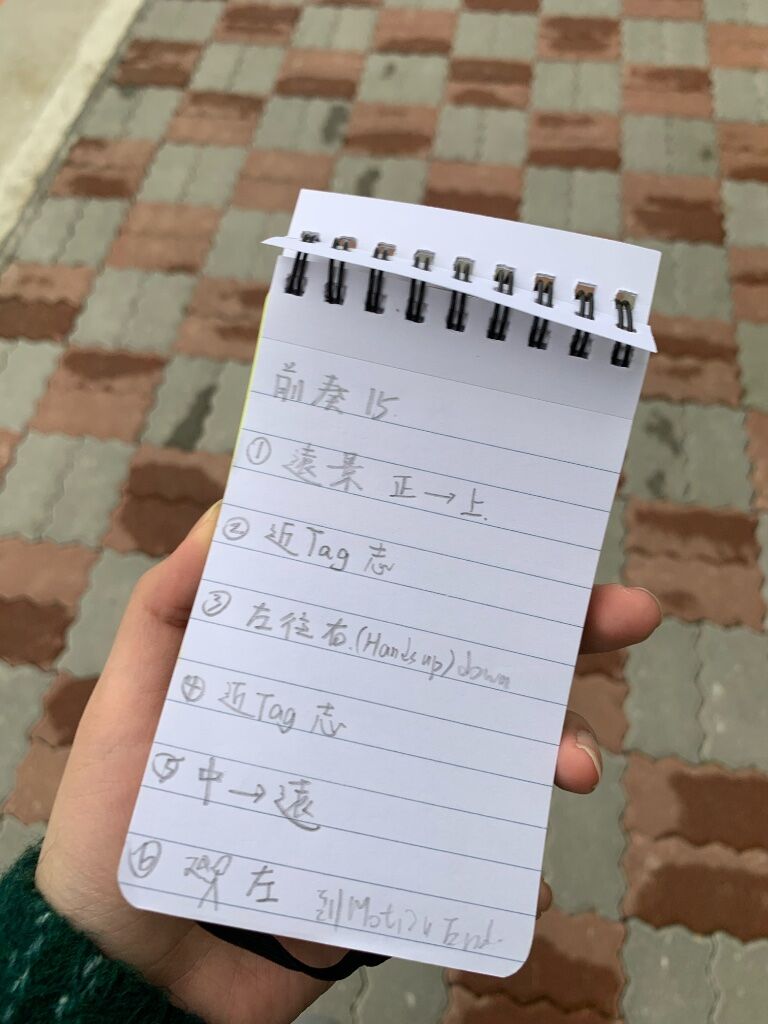 前奏 15.
① 遠景 正→上.
② 近Tag 志
③ 左往右.(Hands up) down
④ 近Tag 志
⑤ 中→遠
⑥ 左 到Motiv End.